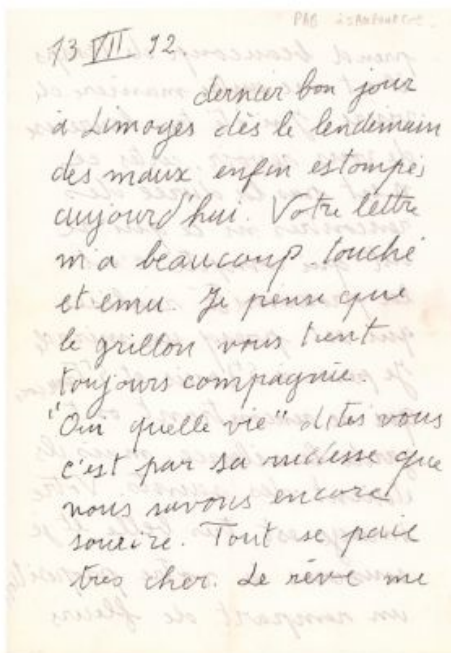 PAB
13 VII. 92.
dernier bon jour
à Limoges dès le lendemain
des maux enfin estompés
aujourd'hui. Votre lettre
m'a beaucoup touché
et emu. Je pense que
le grillon vous tient
toujours compagnie.
"Oui quelle vie" dites vous
c'est par sa rudesse que
nous savons encore
sourire. Tout se paie
très cher. Le rêve me